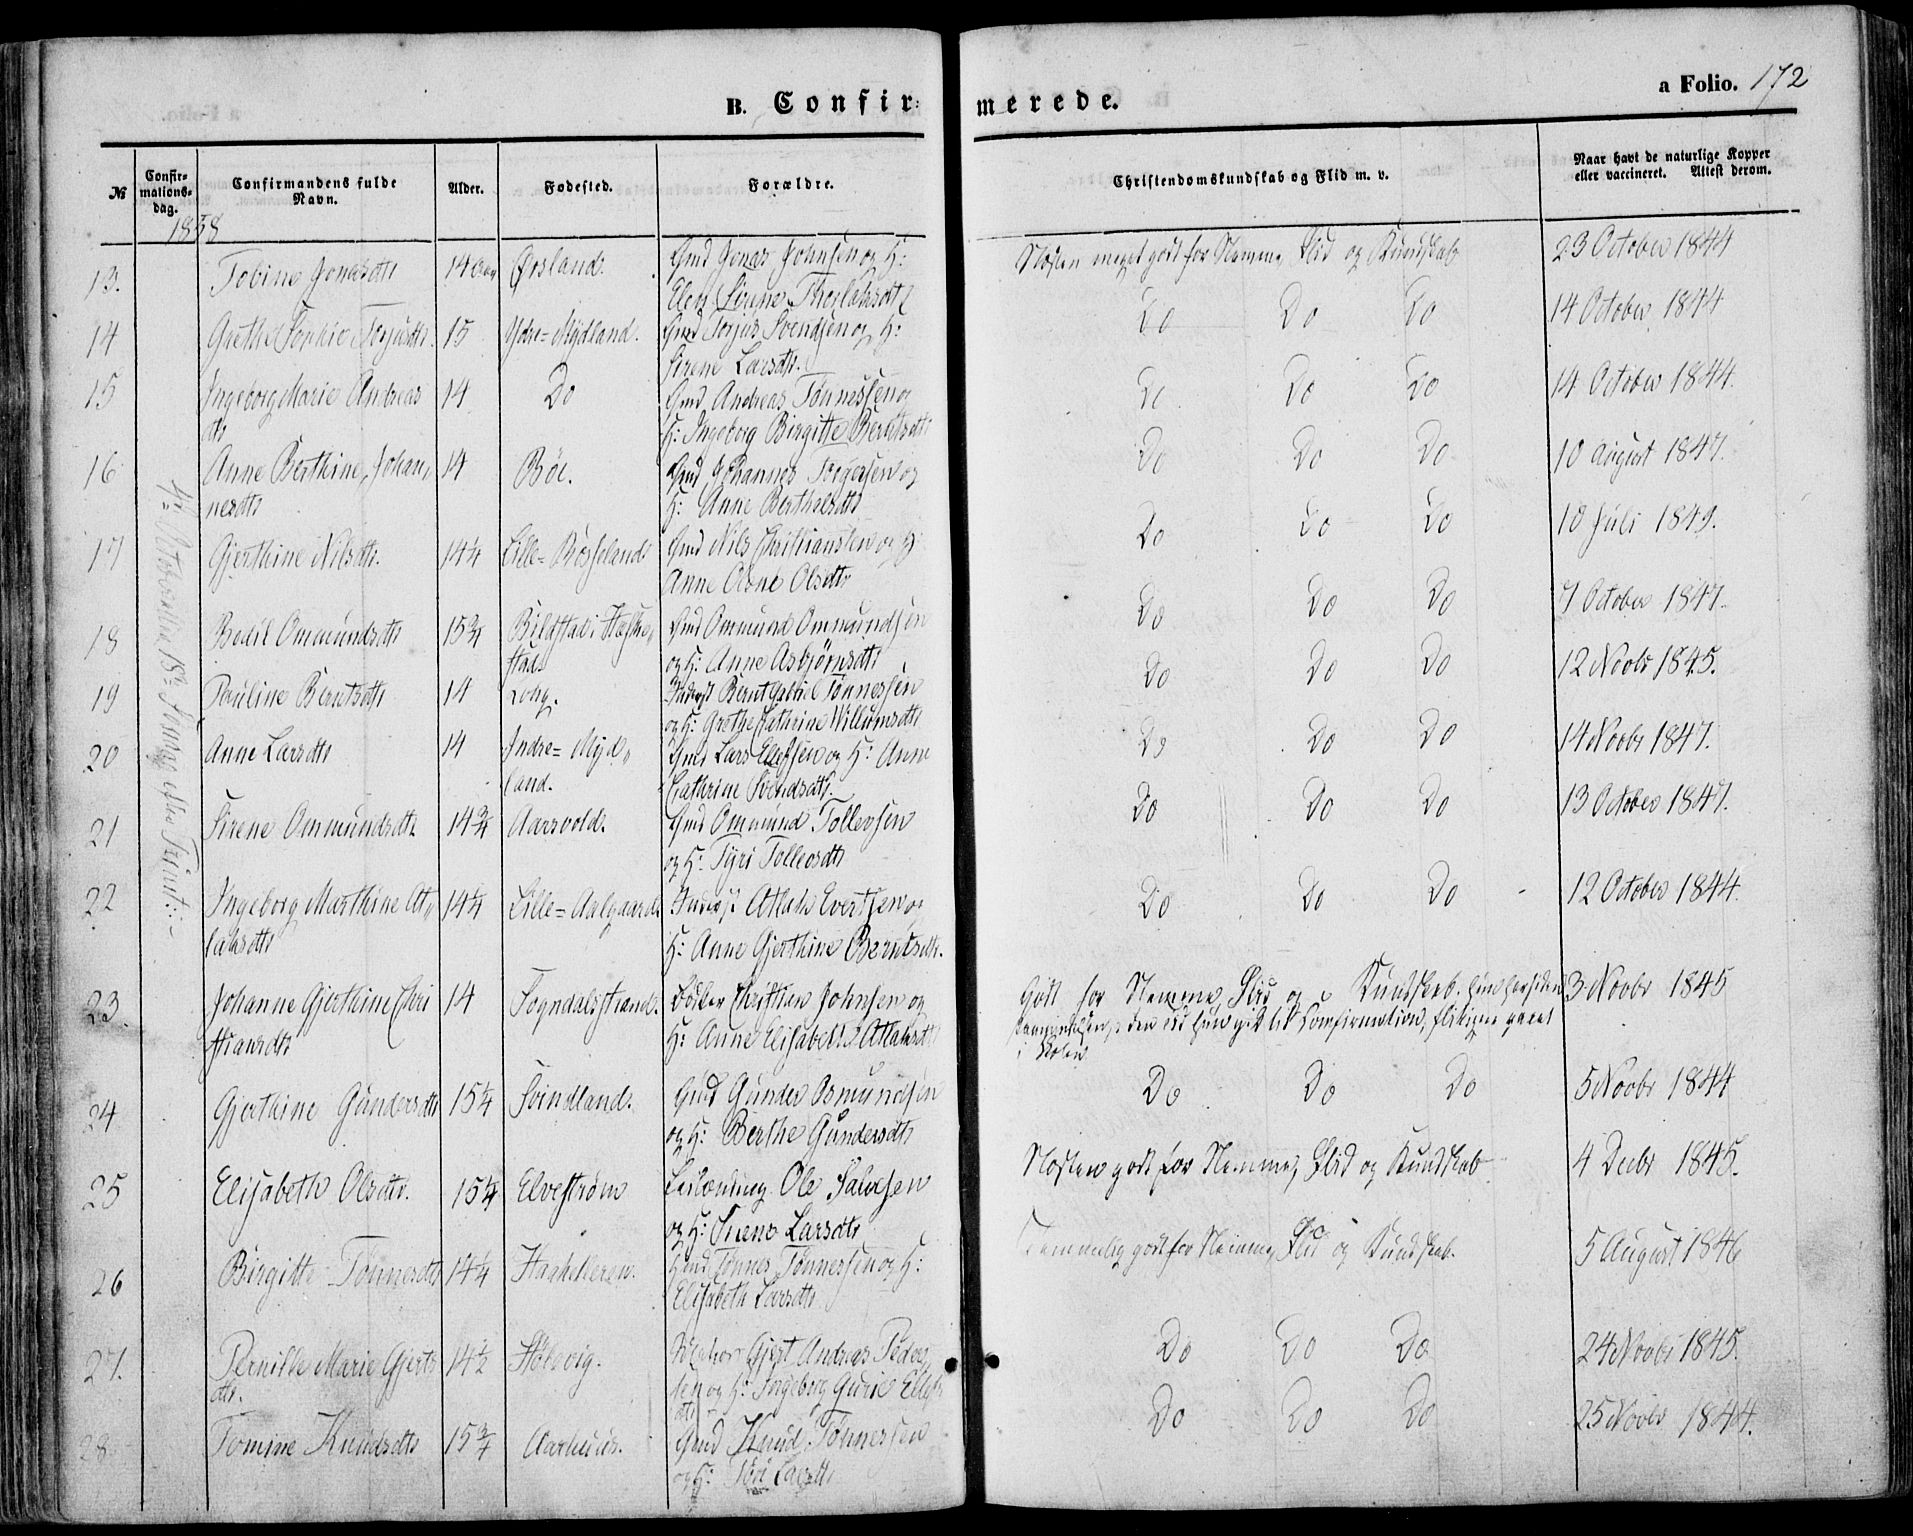 B. Confirmerede.
a Folio. 172
№
Confirmations-dag.
Confirmandens fulde Navn.
Alder.
Fødested.
Forældre.
Christendomskundskab og Flid m. v.
Naar havt de naturlige Kopper eller vaccineret. Attest derom.
1858
13. Tobine Jonasdtr 14 Ørsland. Gmd Jonas Johnsen og H: Næsten meget godt for Nemme, Flid og Kundskab 23 October 1844
Elen Sirene
14 Grethe Sophie Torjusdtr. 15 Ydre=Mydland. Gmd Torjus Svendsen og H: Do Do Do 14 October 1844
Sirene Larsdtr.
15 Ingeborg Marie Andreas 14 Do Gmd Andreas Tønnessen og Do Do Do 14 October 1844.
dtr H: Ingeborg Birgitte Berntsdtr
16 Anne Berthine Johan, 14 Bøe. Gmd Johannes Torgersen og Do Do Do 10 August 1847.
nesdtr H: Anne Berthelsdtr
17 Gjerthine Nilsdtr. 14¼ Lille= Gmd Nils Christiansen og H: Do Do Do 18 Juli 1849.
Anne Olene Olsdtr
18 Bodil Ommundsdtr 15¾ Bilstad i Heske, Gmd Ommund Ommundsen Do Do Do 7 October 1847.
stad og H: Anne Asbjørnsdtr
19 Pauline Berntsdtr 14 Log. Inderst Bernt Gabriel Tønnessen Do Do Do 12 Novbr 1845.
og H: Grethe Cathrine Willumsdtr
20 Anne Larsdtr 14 Indre=Myd, Gmd Lars Ellefsen og H: Anne Do Do Do 14 Novbr 1847.
land. Cathrine Svendsdtr.
21 Sirene Ommundsdtr. 14¾ Aarrvold. Gmd Ommund Tollevsen Do Do Do 13 October 1847.
og H: Tyri Tollevsdtr
22 Ingeborg Marthine At, 14¼ Lille=Aalgaard Inderst Atlak Evertsen og Do Do Do 12 October 1844.
laksdtr H: Anne Gjerthine Berntsdtr.
4de October 18de Søndag efter Trinit:-
23. Johanne Gjerthine Chri 14 Sogndalsstrand. Bødker Christian Johnsen og Godt for Nemme, Flid og Kundskab. 3 Novbr 1845
stiansdtr H: Anne Elisabeth Atlaksdtr
i Skolen
24 Gjerthine Gundersdtr 15¼ Svindland. Gmd Gunder Osmundsen Do Do Do 5 Novbr 1844
og H: Berthe Gundersdtr
25 Elisabeth Olsdtr. 15¼ Elvestrøm Ole Salvesen Næsten godt for Nemme, Flid og Kundskab 4 Decbr 1845.
og H: Sirene Larsdtr
26 Birgitte Tønnesdtr 14¼ Gmd Tønnes Tønnessen og H: Temmelig godt for Nemme, Flid og Kundskab. 5 August 1846
Elisabeth Larsdtr
27. Pernille Marie Gjerts 14½ Hølevig. Gjert Andreas Peder, Do Do Do 24 Novbr 1845.
dtr. sen og H: Ingeborg Gurie Ellefs
dtr
28 Tomine Knudsdtr 15¾ Aarhuus. Gmd Knud Tønnessen Do Do Do 25 Novbr 1844.
og H: Larsdtr